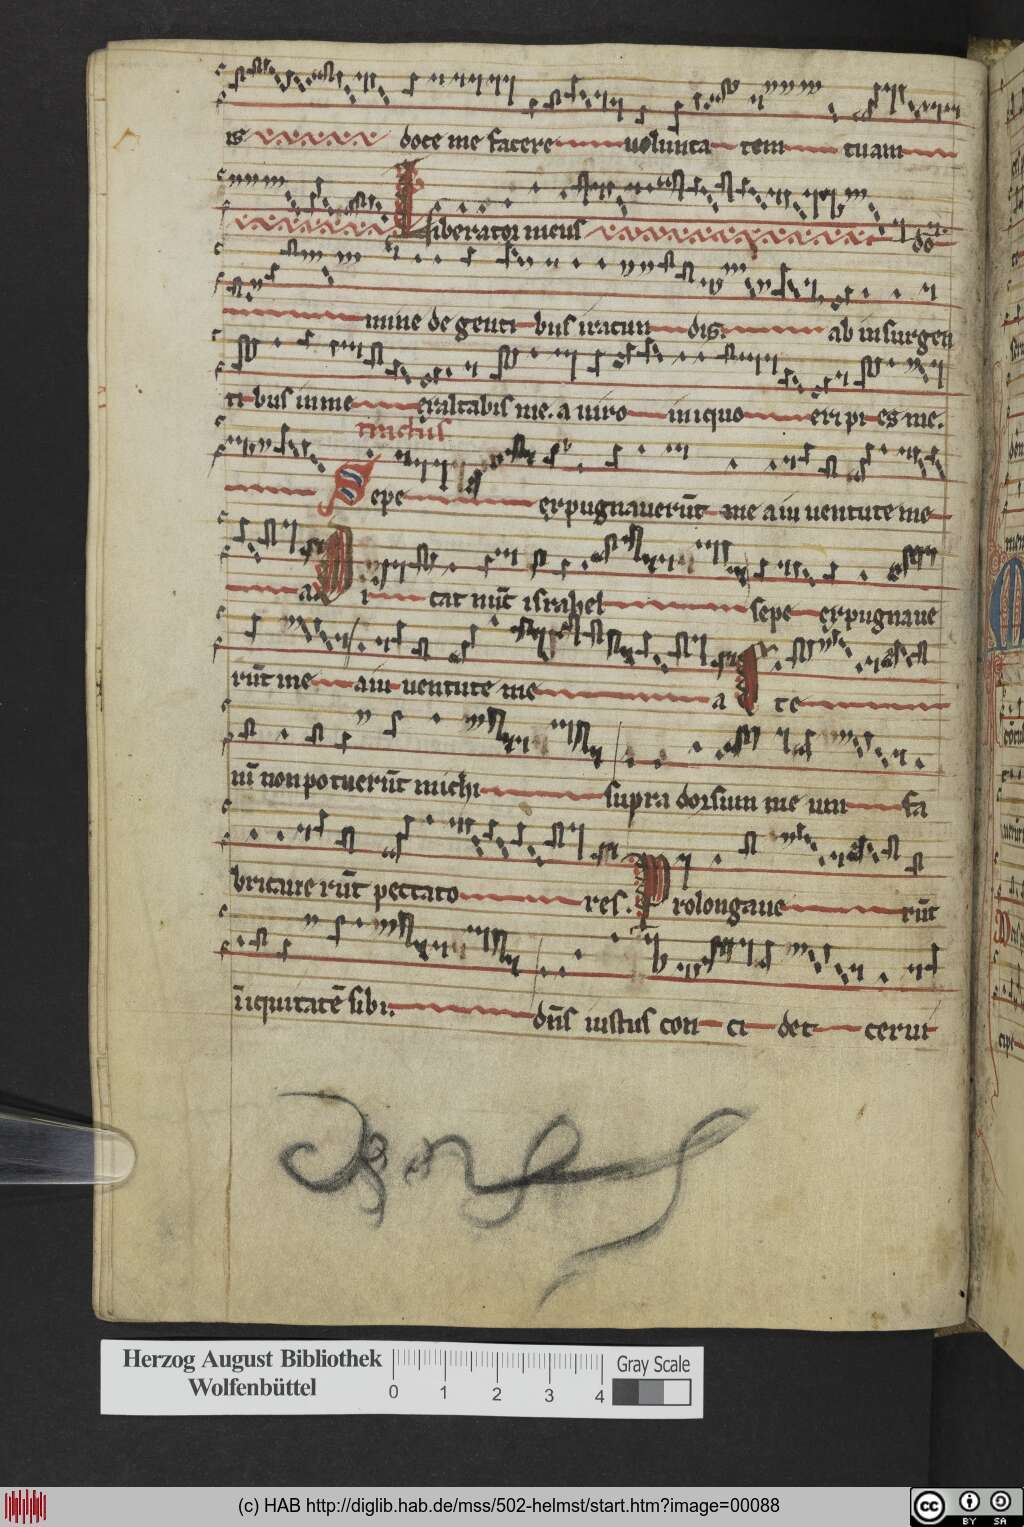 is doce me facere volunta tem tuam
Liberator meus do
mine de genti bus iracun dis. ab insurgen
ti bus in me exaltabis me. a viro iniquo eri pi es me.
tractus
Sepe expugnauerūt me a iu uentute me
a Di cat nūc israhel sepe expugnaue
rūt me a iu uentute me a Te
nī non potuerūt michi supra dorsum me um fa
bricaue rūt peccato res. Prolongaue rūt
īiquitatē sibi. dn̄s iustus con ci det cerui
Herzog August Bibliothek
Wolfenbüttel
0 1 2 3 4
Gray Scale
(c) HAB http://diglib.hab.de/mss/502-helmst/start.htm?image=00088
cc BY SA